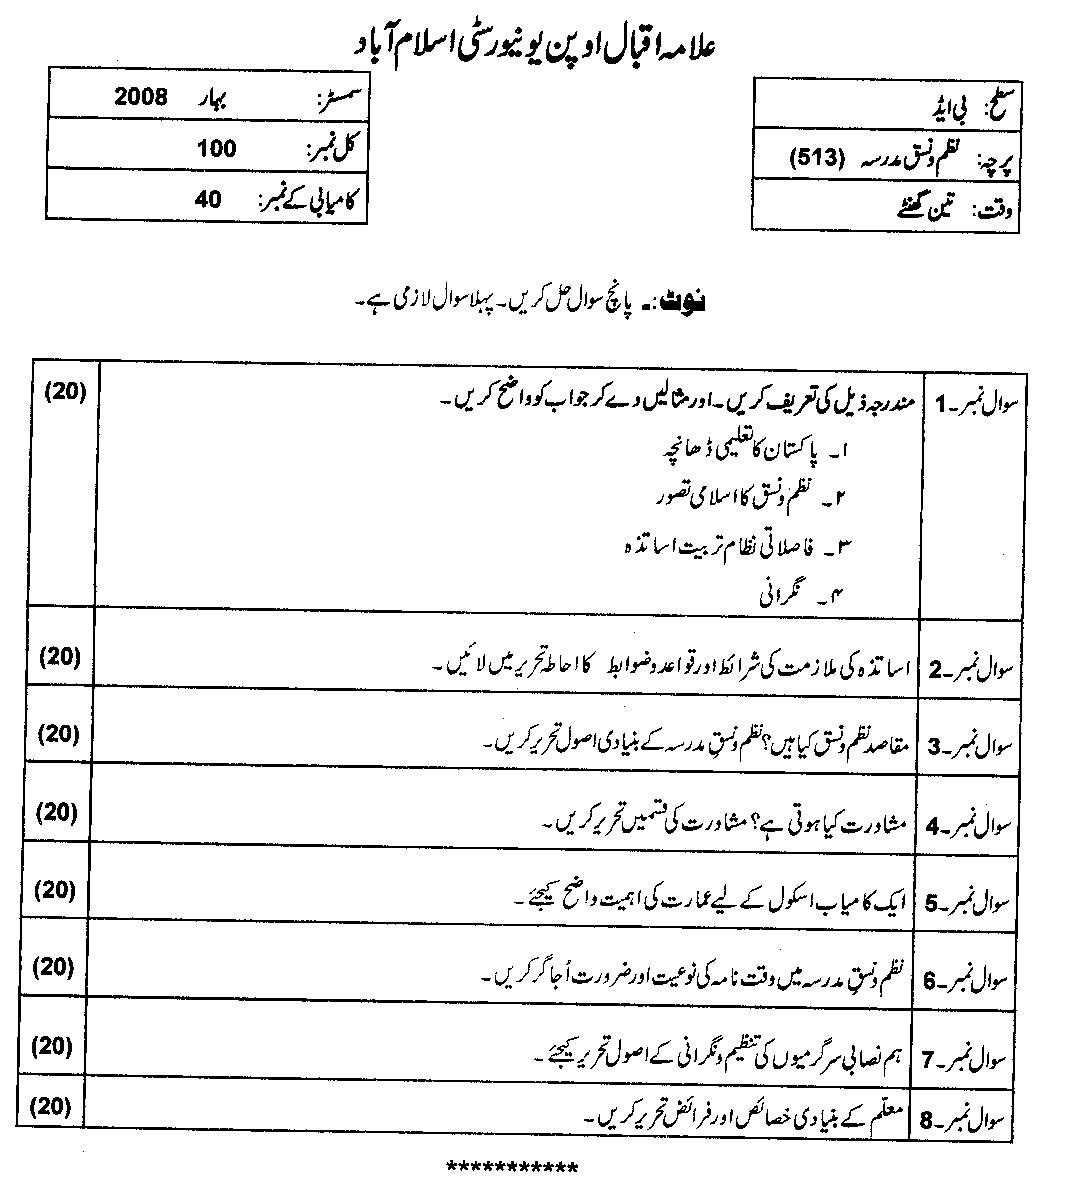 علامہ اقبال اوپن یونیورسٹی اسلام آباد
سطح: بی ایڈ
پرچہ: نظم و نسق مدرسہ (513)
وقت: تین گھنٹے
سمسٹر: بہار 2008
کل نمبر: 100
کامیابی کے نمبر: 40
نوٹ:۔ پانچ سوال حل کریں۔ پہلا سوال لازمی ہے۔
سوال نمبر۔1 مندرجہ ذیل کی تعریف کریں۔ اور مثالیں دے کر جواب کو واضح کریں۔ (20)
۱۔ پاکستان کا تعلیمی ڈھانچہ
۲۔ نظم و نسق کا اسلامی تصور
۳۔ فاصلاتی نظام تربیت اساتذہ
۴۔ نگرانی
سوال نمبر۔2 اساتذہ کی ملازمت کی شرائط اور قواعد و ضوابط کا احاطہ تحریر میں لائیں۔ (20)
سوال نمبر۔3 مقاصد نظم و نسق کیا ہیں؟ نظم و نسقِ مدرسہ کے بنیادی اصول تحریر کریں۔ (20)
سوال نمبر۔4 مشاورت کیا ہوتی ہے؟ مشاورت کی قسمیں تحریر کریں۔ (20)
سوال نمبر۔5 ایک کامیاب اسکول کے لیے عمارت کی اہمیت واضح کیجئے۔ (20)
سوال نمبر۔6 نظم و نسقِ مدرسہ میں وقت نامہ کی نوعیت اور ضرورت اُجاگر کریں۔ (20)
سوال نمبر۔7 ہم نصابی سرگرمیوں کی تنظیم و نگرانی کے اصول تحریر کیجئے۔ (20)
سوال نمبر۔8 معلم کے بنیادی خصائص اور فرائض تحریر کریں۔ (20)
***********